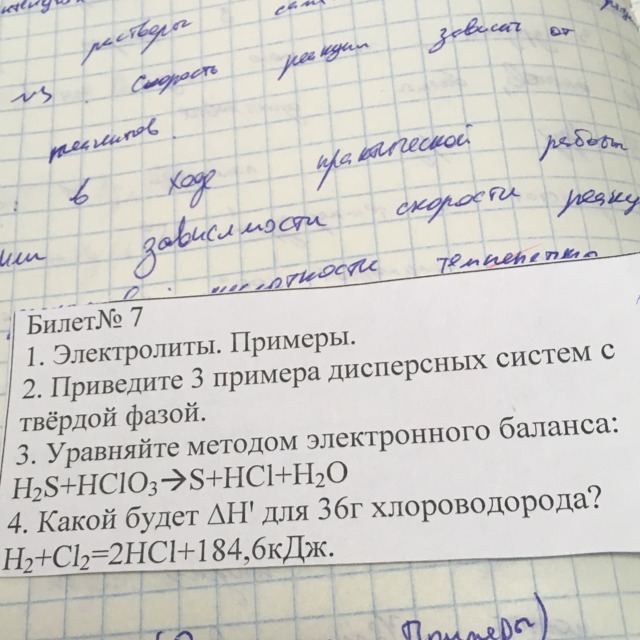 растворы
скорость реакции зависит от
реагентов.
в ходе практической работы
зависимости скорости
Билет№ 7
1. Электролиты. Примеры.
2. Приведите 3 примера дисперсных систем с
твёрдой фазой.
3. Уравняйте методом электронного баланса:
H₂S+HClO₃→S+HCl+H₂O
4. Какой будет ΔH' для 36г хлороводорода?
H₂+Cl₂=2HCl+184,6кДж.
Примеры)